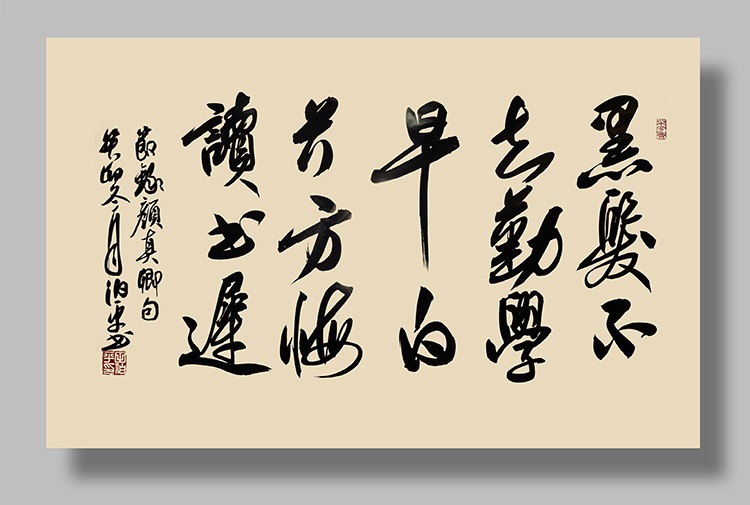 黑髮不
知勤學
早白
首方悔
讀书遲
節錄顏真卿句
癸卯冬月